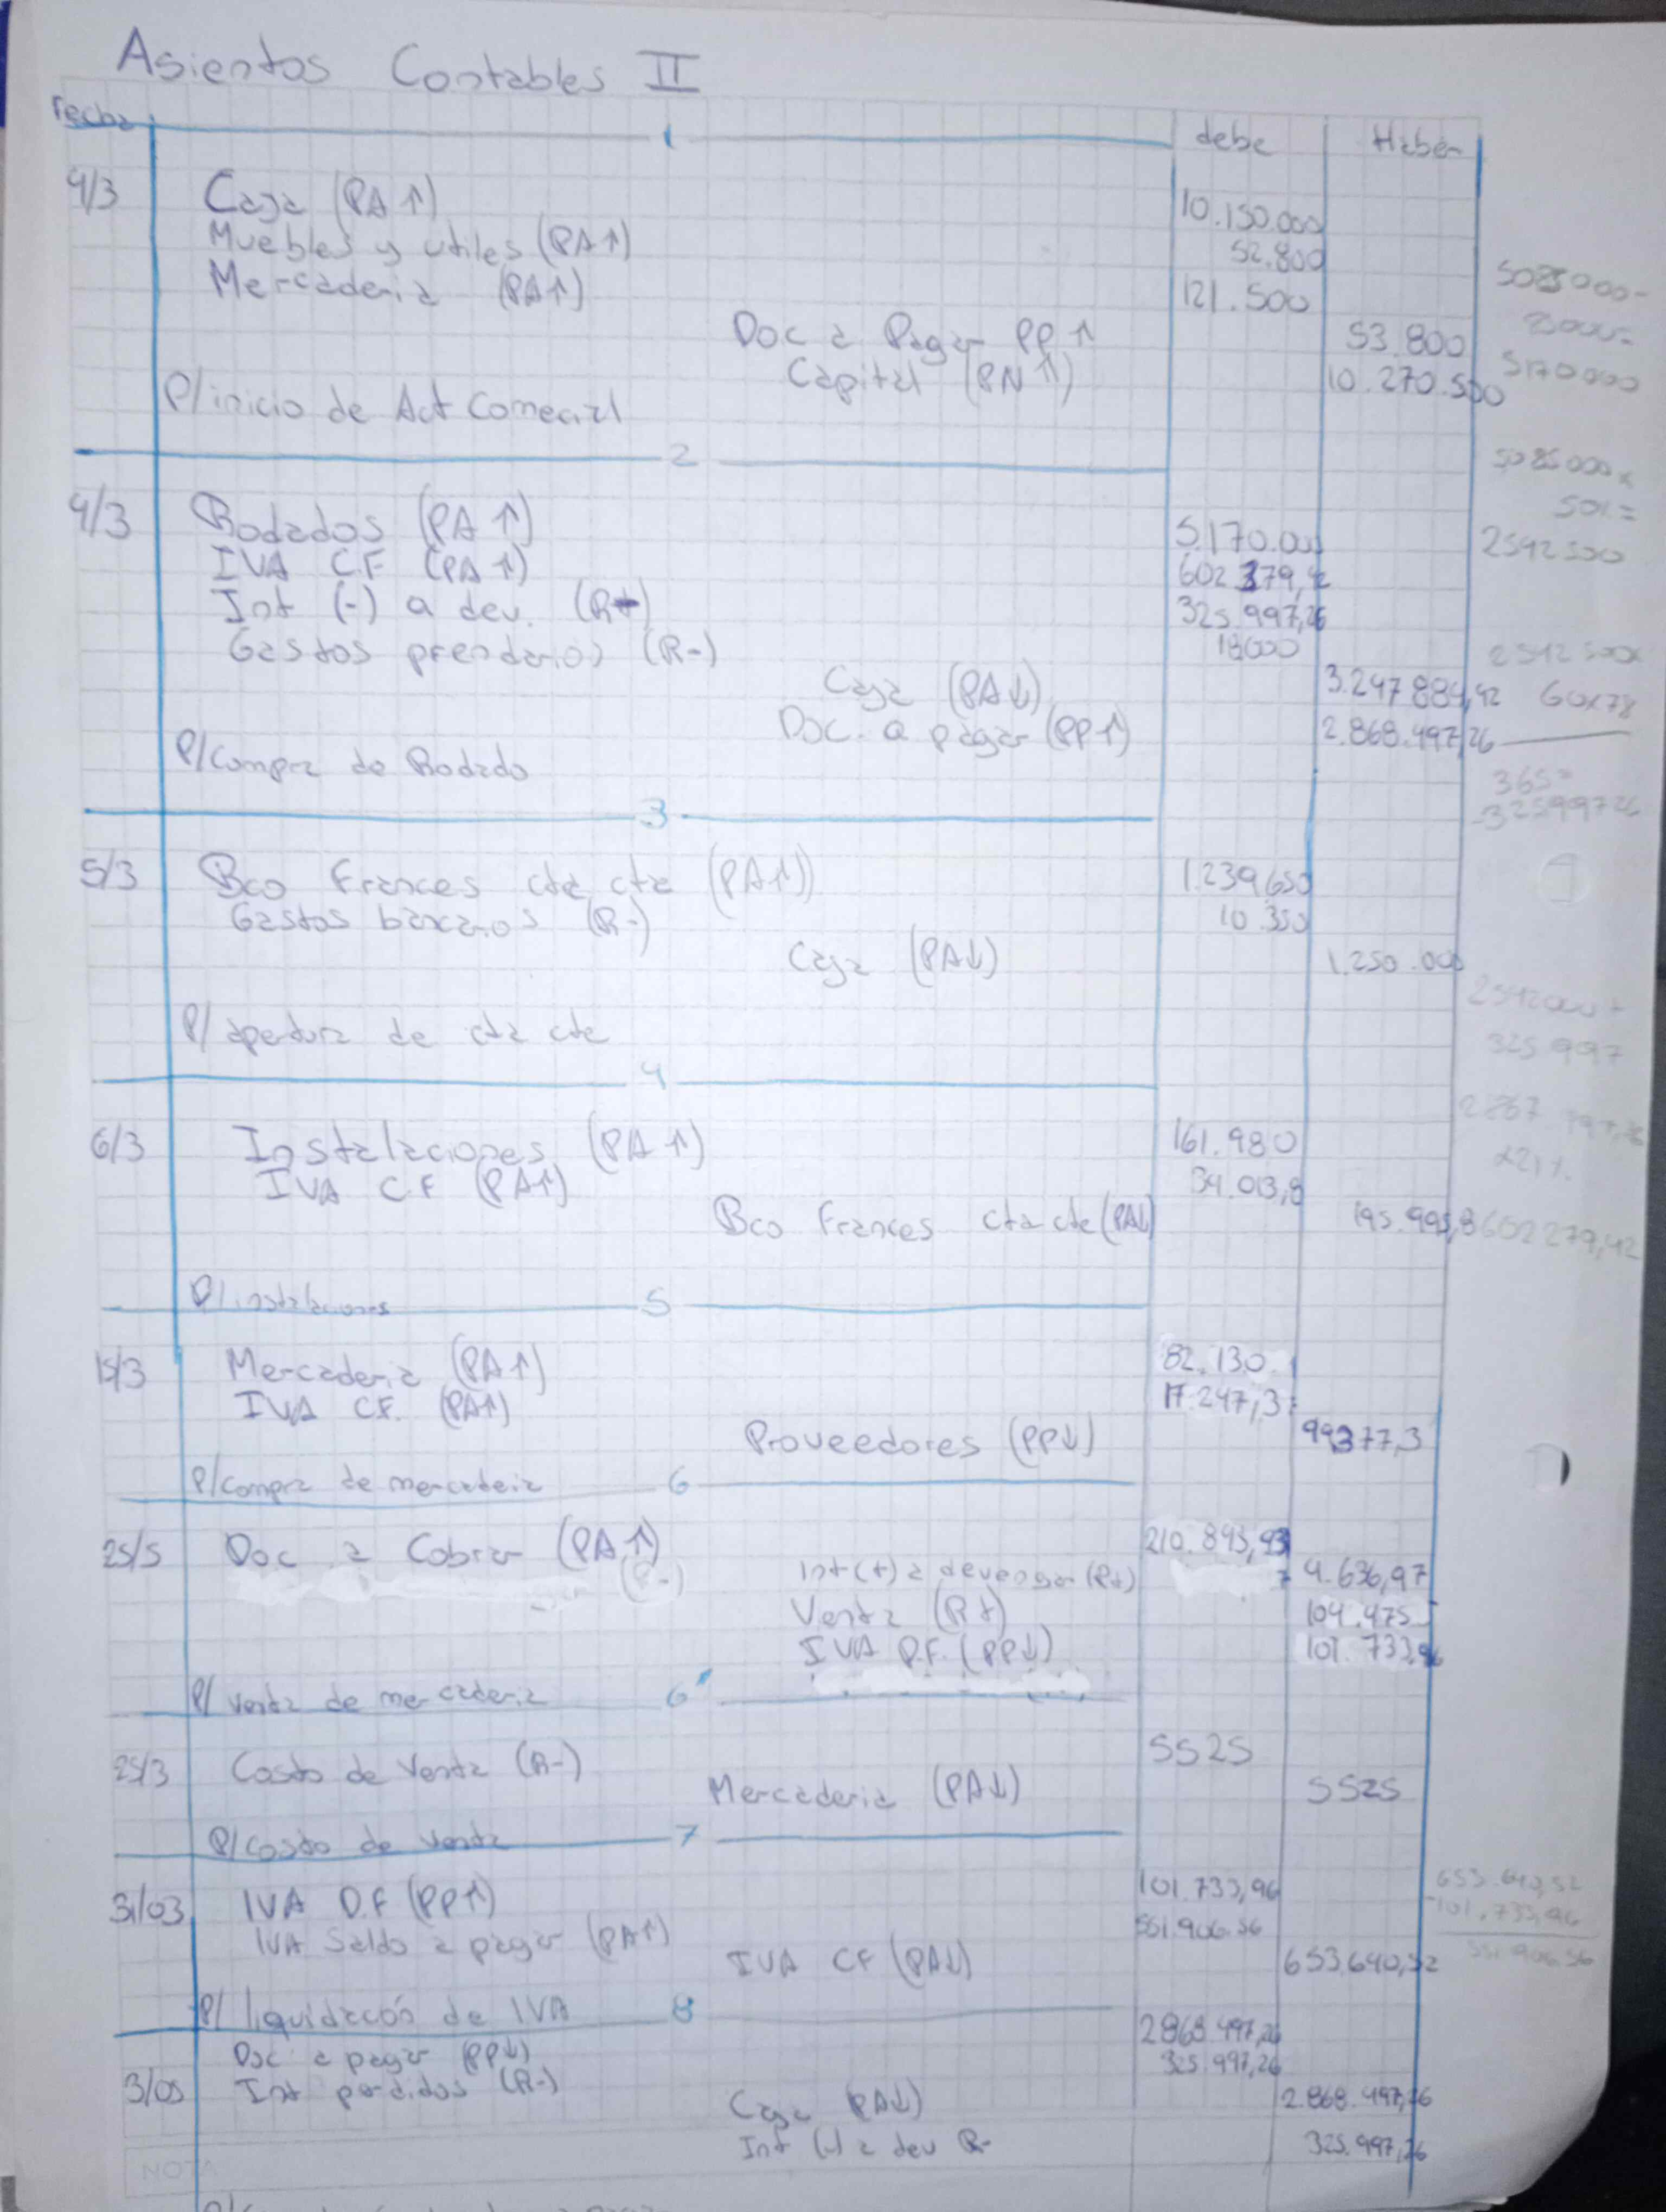 Asientos Contables II
Fecha 1 debe Haber
4/3 Caja (PA↑) 10.150.000
Muebles y utiles (PA↑) 52.800
Mercaderia (PA↑) 121.500
Doc a Pagar PP↑ 53.800
Capital (PN↑) 10.270.500
P/inicio de Act Comecial
2
4/3 Rodados (PA↑) 5.170.000
IVA C.F (PA↑)
Int (-) a dev. 325.997,26
Gastos prendarios (R-) 18000
Caja (PA↓) 3.247.884,42
Doc. a pagar (PP↑) 2.868.497,26
P/Compra de Rodado
3
5/3 Bco Frances cta cte (PA↑) 1.239.650
Gastos bancarios (R-) 10.350
Caja (PA↓) 1.250.000
P/apertura de cta cte
4
6/3 Instalaciones (PA↑) 161.980
IVA C.F (PA↑) 34.013,8
Bco Frances cta cte (PA↓) 195.993,8
P/instalaciones 5
15/3 Mercaderia (PA↑) 82.130
IVA C.F. (PA↑) 17.247,3
Proveedores (PP↓) 99377,3
P/compra de mercaderia 6
25/5 Doc a Cobrar (PA↑) 210.843,93
Int (+) a devengar (R+) 4.636,97
Venta (R+) 104.475
IVA D.F. (PP↓) 101.733,96
P/ venta de mercaderia 6'
25/3 Costo de Venta (R-) 5525
Mercaderia (PA↓) 5525
P/Costo de venta 7
31/03 IVA D.F (PP↑) 101.733,96
IVA Saldo a pagar (PA↑) 551.906.56
IVA CF (PA↓) 653.640,52
P/ liquidación de IVA 8
Doc a pagar (PP↓) 2868.497,26
3/05 Int perdidos (R-) 325.997,26
Caja (PA↓) 2.868.497,26
Int (-) a dev R- 325.997,26
NOTA
5085000
5170000
5085000x
50%=
2542500
2542500x
60x78
365=
325997 26
2542000+
325 997
x21%
602279,42
653.640,52
-101.733,96
551.906,56